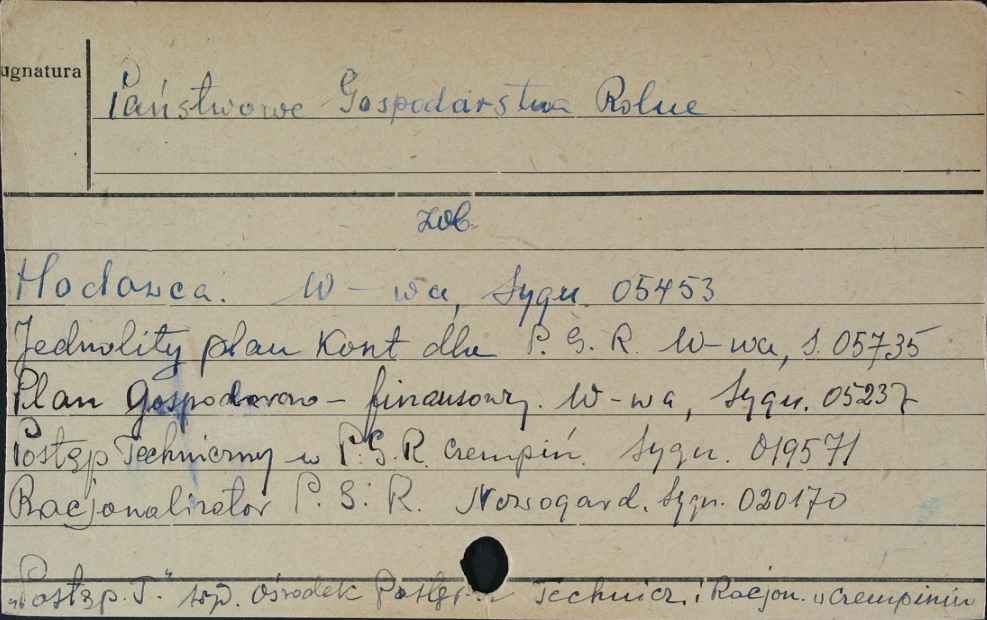 ugnatura
Państwowe Gospodarstwa Rolne
zob.
Hodowca. W-wa, Sygn. 05453
Jednolity plan Kont dla P. G. R. W-wa, S. 05735
Plan Gospodarczo - finansowy. W-wa, Sygn. 05237
Postęp Techniczny w P.G.R. Czempiń. Sygn. 019571
Racjonalizator P. G. R. Nowogard. Sygn. 020170
"Postęp. T." Ośrodek Technicz. i Racjon. w Czempiniu